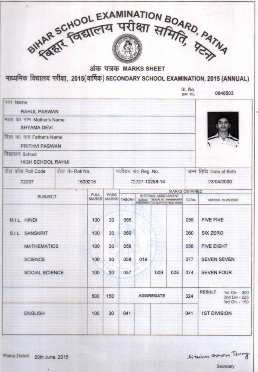 BIHAR SCHOOL EXAMINATION BOARD, PATNA
बिहार विद्यालय परीक्षा समिति, पटना
अंक पत्रक MARKS SHEET
माध्यमिक विद्यालय परीक्षा, 2015 (वार्षिक) SECONDARY SCHOOL EXAMINATION, 2015 (ANNUAL)
Sl. No.
0840503
नाम Name
RAHUL PASWAN
माता का नाम Mother's Name
SHYAMA DEVI
पिता का नाम Father's Name
PRITHVI PASWAN
विद्यालय School
HIGH SCHOOL RAHUI
रौल कोड Roll Code रौल नं० Roll No. Reg. No. जन्म तिथि Date of Birth
72037 72037-10288-14 23/04/2000
MARKS OBTAINED
SUBJECT FULL MARKS PASS MARKS THEORY TOTAL MARKS IN WORDS
M.I.L HINDI 100 30 055 055 FIVE FIVE
S.I.L SANSKRIT 100 30 060 060 SIX ZERO
MATHEMATICS 100 30 058 058 FIVE EIGHT
SCIENCE 100 30 058 019 077 SEVEN SEVEN
SOCIAL SCIENCE 100 30 057 074 SEVEN FOUR
500 150 AGGREGATE 324 RESULT
ENGLISH 100 30 041 041 1ST DIVISION
Patna, Dated 20th June, 2015
Secretary